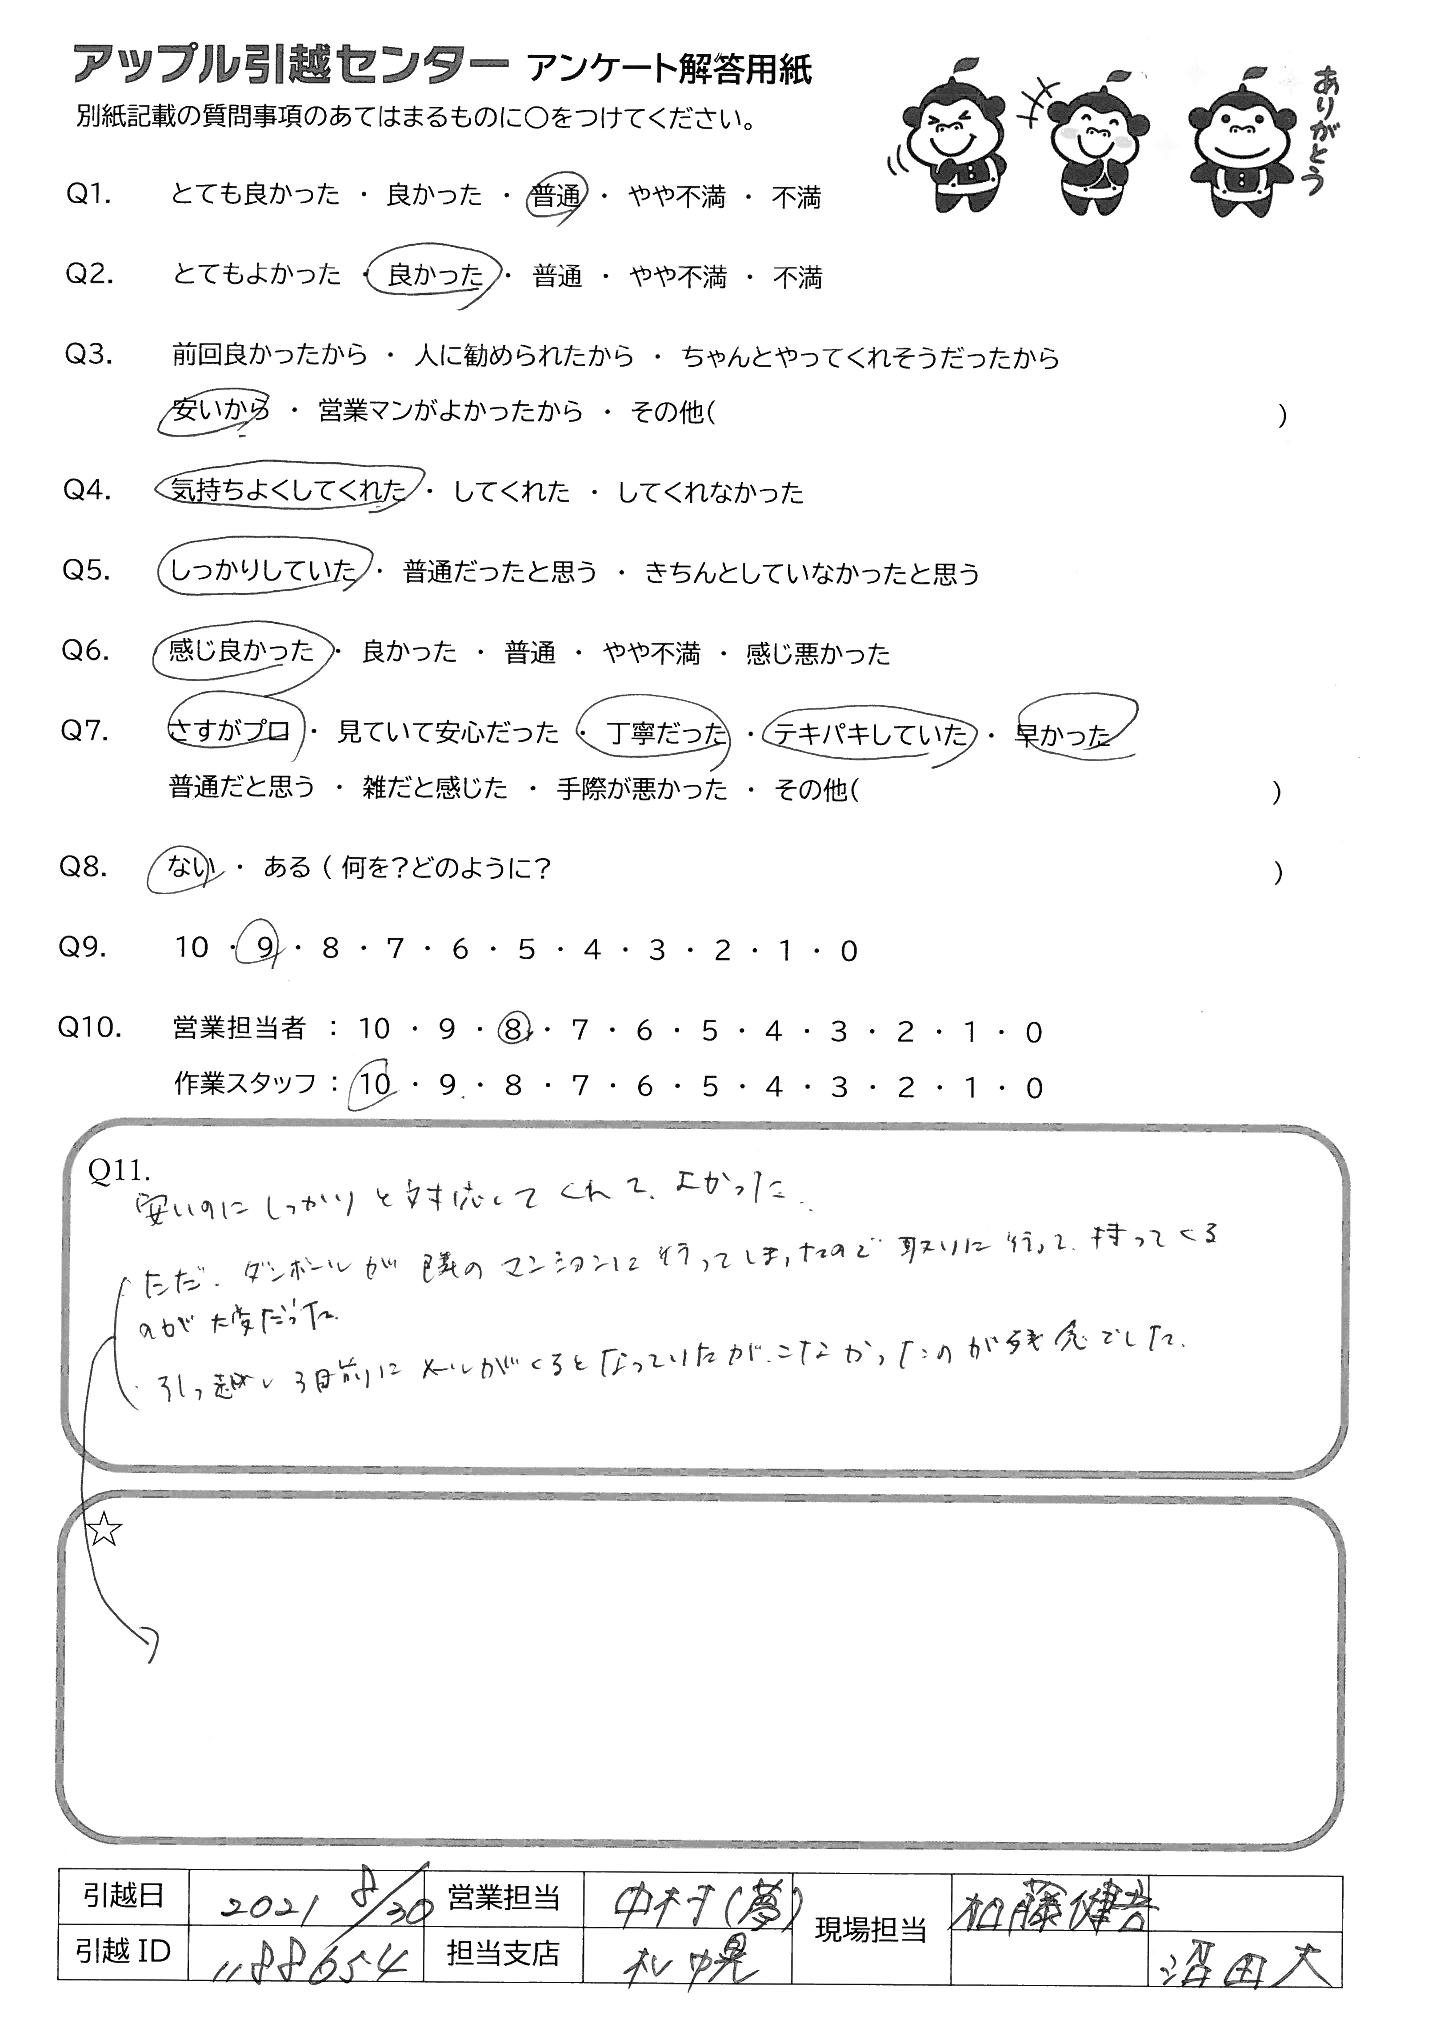 アップル引越センター アンケート解答用紙
別紙記載の質問事項のあてはまるものに○をつけてください。
ありがとう
Q1. とても良かった ・ 良かった ・ 普通 ・ やや不満 ・ 不満
Q2. とてもよかった ・ 良かった ・ 普通 ・ やや不満 ・ 不満
Q3. 前回良かったから ・ 人に勧められたから ・ ちゃんとやってくれそうだったから
安いから ・ 営業マンがよかったから ・ その他( )
Q4. 気持ちよくしてくれた ・ してくれた ・ してくれなかった
Q5. しっかりしていた ・ 普通だったと思う ・ きちんとしていなかったと思う
Q6. 感じ良かった ・ 良かった ・ 普通 ・ やや不満 ・ 感じ悪かった
Q7. さすがプロ ・ 見ていて安心だった ・ 丁寧だった ・ テキパキしていた ・ 早かった
普通だと思う ・ 雑だと感じた ・ 手際が悪かった ・ その他( )
Q8. ない ・ ある ( 何を?どのように? )
Q9. 10 ・ 9 ・ 8 ・ 7 ・ 6 ・ 5 ・ 4 ・ 3 ・ 2 ・ 1 ・ 0
Q10. 営業担当者 : 10 ・ 9 ・ 8 ・ 7 ・ 6 ・ 5 ・ 4 ・ 3 ・ 2 ・ 1 ・ 0
作業スタッフ : 10 ・ 9 ・ 8 ・ 7 ・ 6 ・ 5 ・ 4 ・ 3 ・ 2 ・ 1 ・ 0
Q11.
安いのにしっかりと対応してくれて、よかった。
ただ、ダンボールが隣のマンションに行ってしまったので取りに行って、持ってくる
のが大変だった。
引っ越し3日前にメールがくるとなっていたが、こなかったのが残念でした。
☆
引越日 2021 8/30 営業担当 中村(夢) 現場担当 加藤健吾
引越 ID 1188654 担当支店 札幌 沼田大